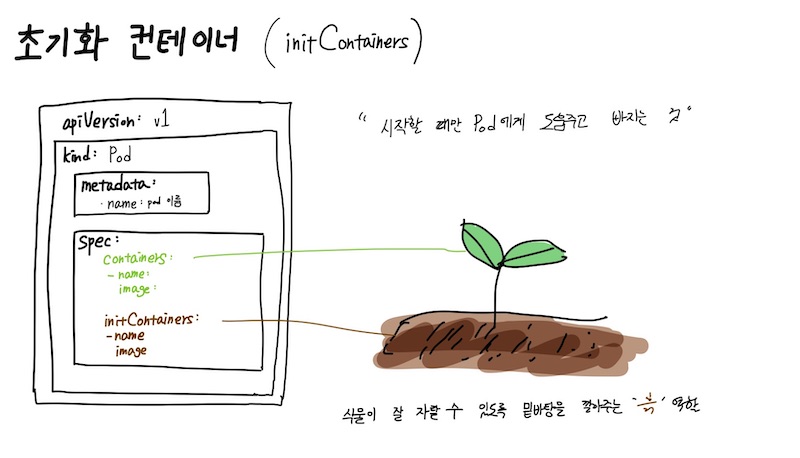 초기화 컨테이너 (initContainers)
apiVersion: v1
kind: Pod
metadata:
· name: pod 이름
spec:
containers:
- name:
image:
initContainers:
- name
image
"시작할 때만 Pod에게 도움주고 빠지는 것"
식물이 잘 자랄 수 있도록 밑바탕을 깔아주는 '흙' 역할